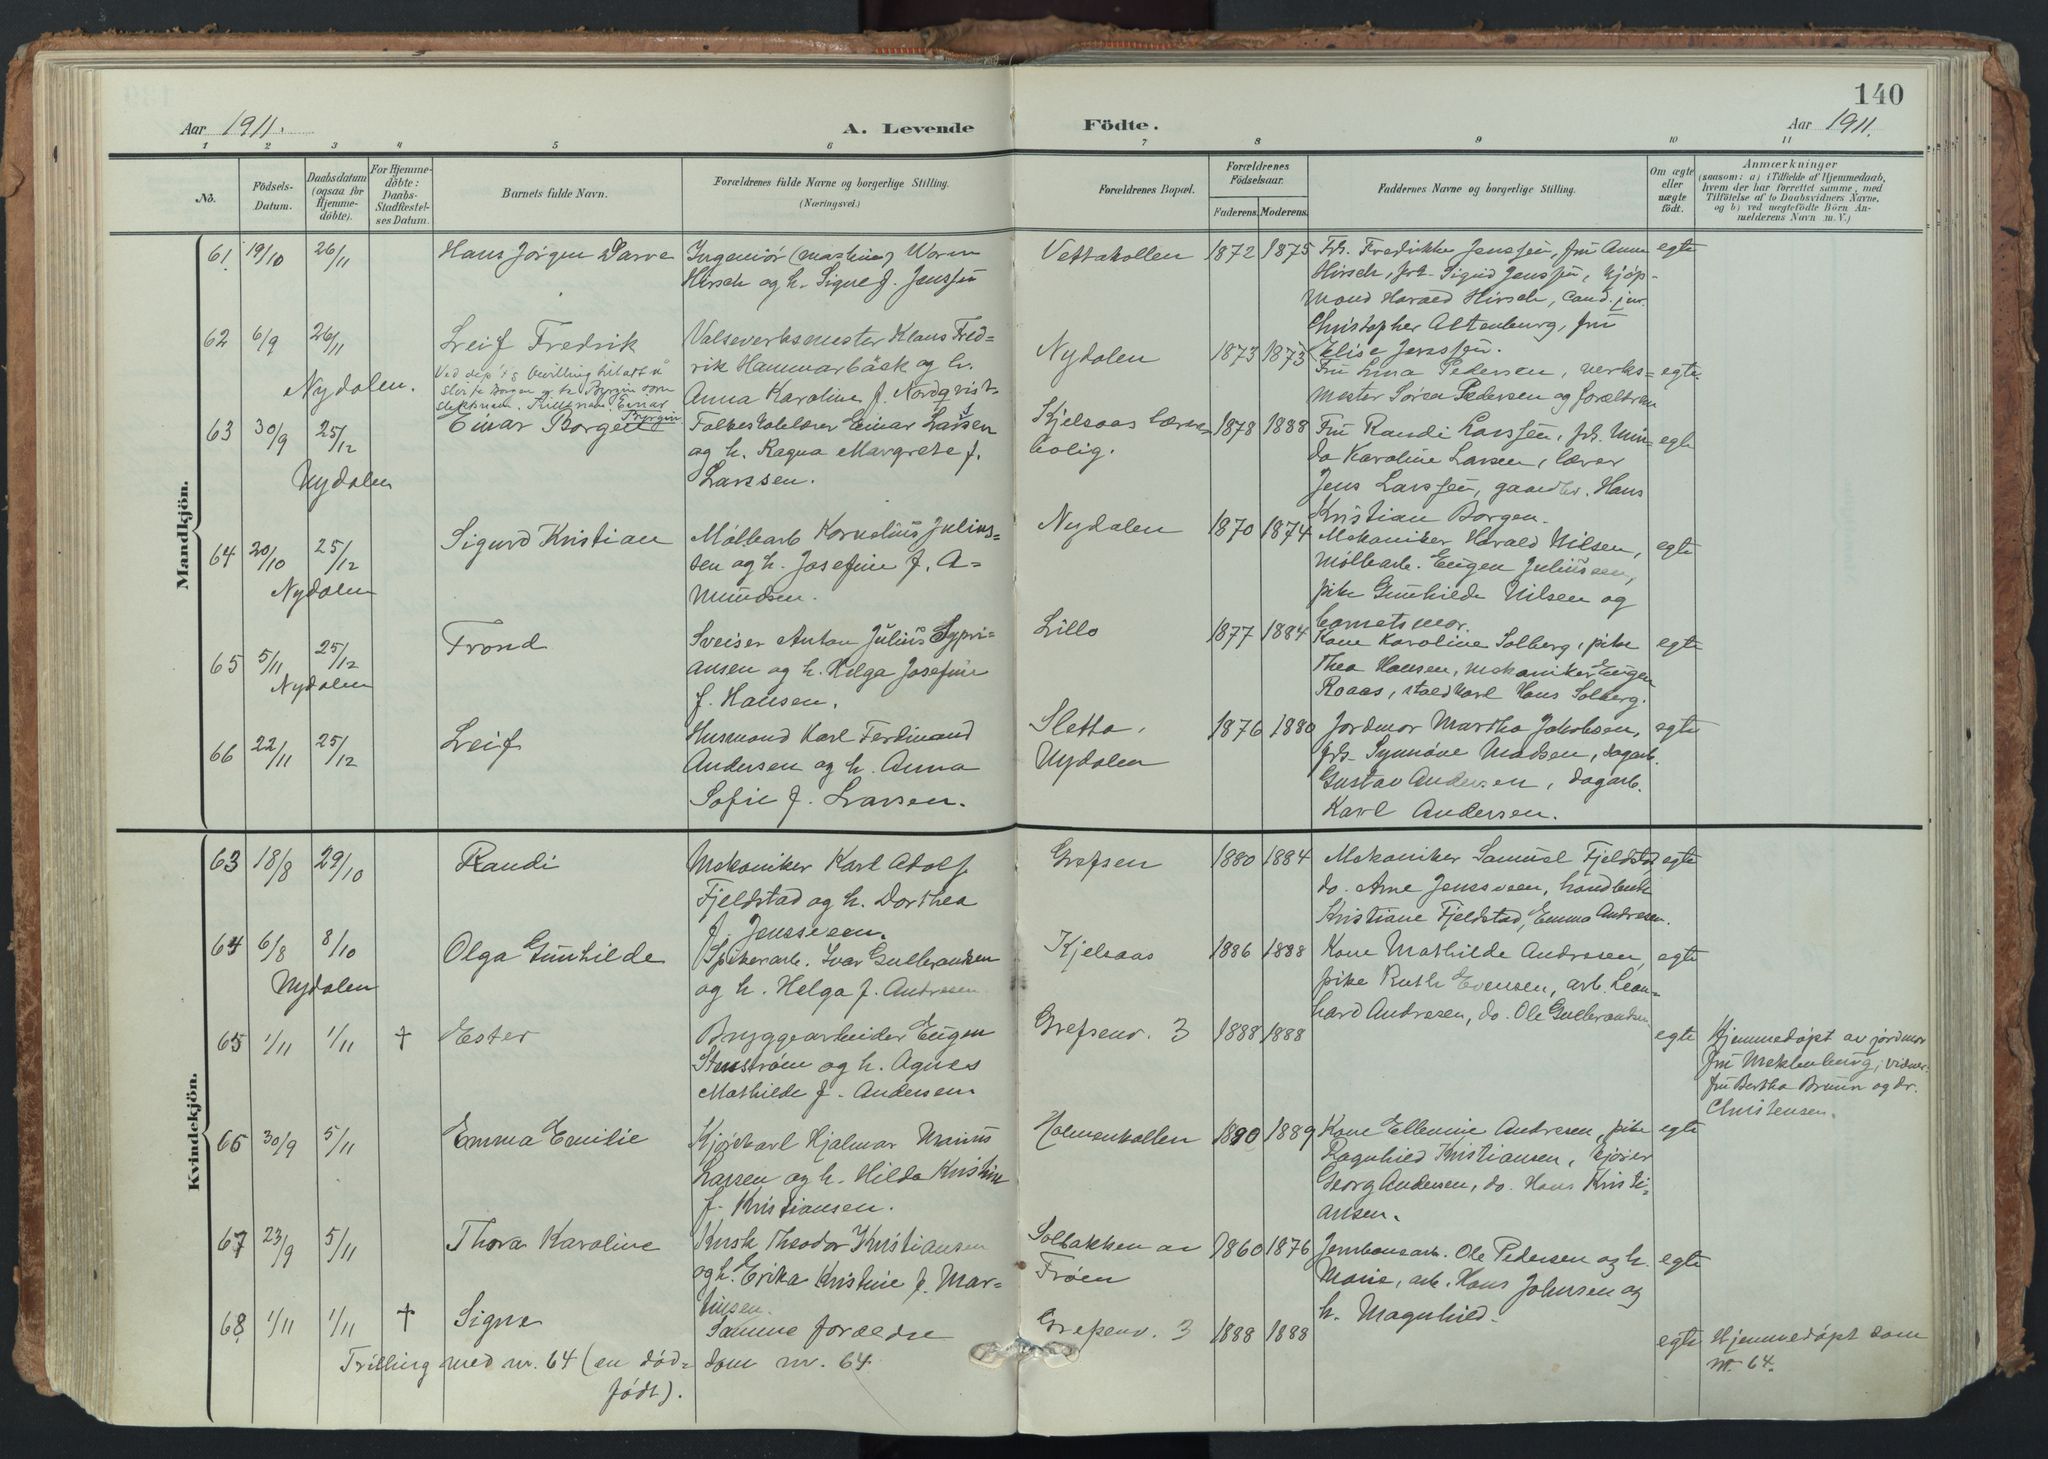 140
Aar 1911.
A. Levende
Födte.
Aar 1911.
1 2 3 4 5 6 7 8 9 10 11
No.
Födsels-
Datum.
Daabsdatum
(ogsaa for
Hjemme-
döbte).
For Hjemme-
döbte:
Daabs-
Stadfæstel-
ses Datum.
Barnets fulde Navn.
Forældrenes fulde Navne og borgerlige Stilling.
(Næringsvei.)
Forældrenes Bopæl.
Forældrenes
Födselsaar.
Faderens. Moderens.
Faddernes Navne og borgerlige Stilling.
Om ægte
eller
uægte
födt.
Anmærkninger
(saasom: a) i Tilfælde af Hjemmedaab,
hvem der har forrettet samme, med
Tilföielse af to Daabsvidners Navne,
og b) ved uægtefödte Börn An-
melderens Navn m. V.)
Mandkjön.
61 19/10 26/11 Hans Jørgen Sarre
Ingeniør (maskin) Worm
Hirsch og h. Signe f. Jenssen
Vettakollen 1872 1875
Frk. Fredrikke Jenssen, fru Anna
Hirsch, frk. Sigrid Jenssen, kjøp-
mand Harald Hirsch, cand. jur.
Christopher Altenburg, fru
Elise Jenssen.
egte
62 6/9 26/11 Leif Fredrik
Nydalen.
Valseverksmester Klaus Fred-
rik Hammarbäck og h.
Anna Karoline f. Nordqvist
Nydalen 1873 1873
Fru Lina Pedersen, verks-
mester Søren Pedersen og forældrene
egte
63 30/9 25/12 Einar Borgen
Nydalen
Folkeskolelærer Einar Larsen
og h. Ragna Margrete f.
Larssen.
Kjelsaas lærer-
bolig.
1878 1888
Fru Randi Larssen, frk. Min-
da Karoline Larsen, lærer
Jens Larssen, gaardbr. Hans
Kristian Borgen.
egte
64 20/10 25/12 Sigurd Kristian
Nydalen
Møllearb. Kornelius Julius-
sen og h. Josefine f. A-
mundsen.
Nydalen 1870 1874
Mekaniker Harald Nilsen,
møllearb. Eugen Juliussen,
pike Gunhilde Nilsen og
barnets mor.
egte
65 5/11 25/12 Trond
Nydalen
Sveiser Anton Julius Sypri-
ansen og h. Helga Josefine
f. Hansen.
Lillo 1877 1884
Kone Karoline Solberg, pike
Thea Hansen, mekaniker Eugen
Roaas, staldkarl Hans Solberg.
egte
66 22/11 25/12 Leif
Husmand Karl Ferdinand
Andersen og h. Anna
Sofie f. Larsen.
Sletta,
Nydalen
1876 1880
Jordmor Martha Jakobsen,
frk. Synnøve Madsen, dagarb.
Gustav Andersen, dagarb.
Karl Andersen.
egte
Kvindekjön.
63 18/8 29/10 Randi
Mekaniker Karl Adolf
Fjeldstad og h. Dorthea
f. Jensveen.
Grefsen 1880 1884
Mekaniker Samuel Fjeldstad,
do. Arne Jensveen,
Kristiane Fjeldstad, Emma Andresen.
egte
64 6/8 8/10 Olga Gunhilde
Nydalen
Spikerarb. Ivar Gulbrandsen
og h. Helga f. Andresen
Kjelsaas 1886 1888
Kone Mathilde Andresen,
pike Ruth Evensen, arb. Leon-
hard Andresen, do. Ole Gulbrandsen
egte
65 1/11 1/11 † Ester
Bryggearbeider Eugen
Stenstrøm og h. Agnes
Mathilde f. Andersen
Grefsenv. 3 1888 1888
egte
Hjemmedøpt av jordmor
fru Meklenburg; vidner:
fru Bertha Bruun og dr.
Christensen.
66 30/9 5/11 Emma Emilie
Kjørekarl Hjalmar Marius
Larsen og h. Hilda Kristine
f. Kristiansen.
Holmenkollen 1890 1889
Kone Ellenine Andresen, pike
Ragnhild Kristiansen, kjører
Georg Andersen, do. Hans Kristi-
ansen.
egte
67 23/9 5/11 Thora Karoline
Kusk Theodor Kristiansen
og h. Erika Kristine f. Mar-
tinsen.
Solbakken av
Frøen
1860 1876
Jernbanearb. Ole Pedersen og h.
Marie, arb. Hans Johnsen og
h. Magnhild.
egte
68 1/11 1/11 † Signe
Samme forældre
som nr. 64.
Trilling med nr. 64 (en død-
født).
Grefsenv. 3 1888 1888
egte
Hjemmedøpt som
nr. 64.